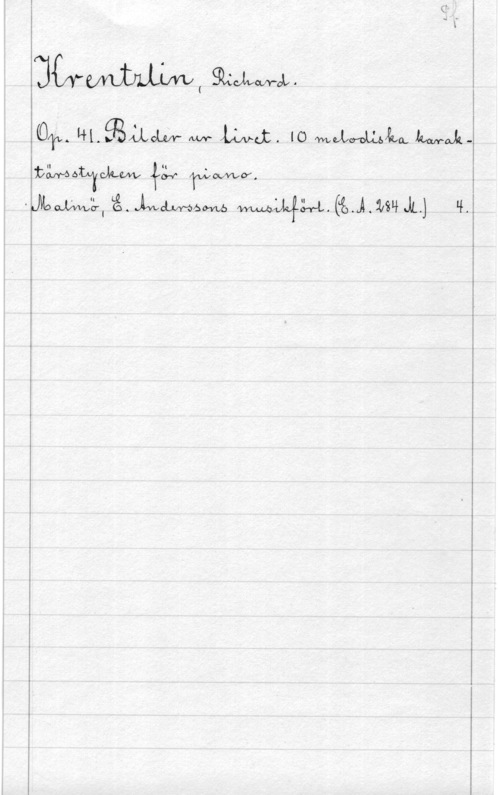 Krentzlin, Richard.
Op. 41. Bilder ur livet. 10 melodiska karak-
tärsstycken för piano.
Malmö, E. Anderssons musikförl. (E.A. 284 M.) 4.